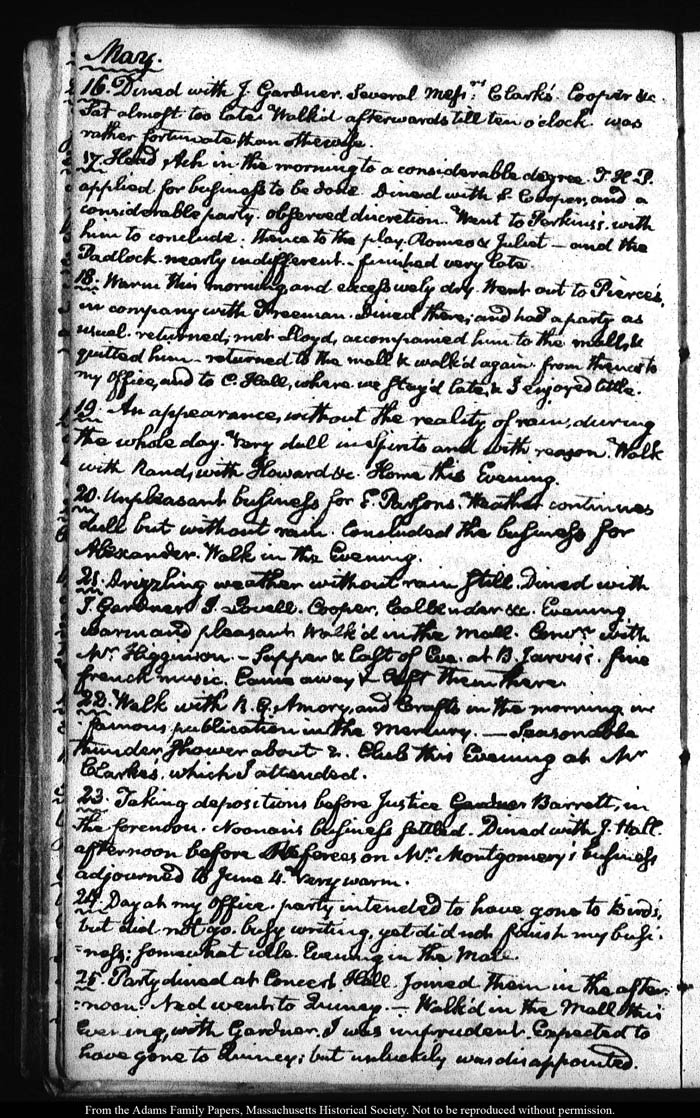 May.
16. Dined with J. Gardner. Several Messrs. Clarks. Cooper &c
Sat almost too late. Walk'd afterwards till ten o'clock. was
rather fortunate than otherwise.
17. Head Ach in the morning to a considerable degree. T. H. P.
applied for business to be done. Dined with S. Cooper, and a
considerable party. observed discretion. Went to Perkins's. with
him to conclude: thence to the play. Romeo & Juliet — and the
Padlock. nearly indifferent. finished very late.
18. Warm this morning and excessively dry. Went out to Pierce's,
in company with Freeman. Dined there; and had a party as
usual. returned, met Lloyd, accompanied him to the mall, &
quitted him. returned to the mall & walk'd again. from thence to
my Office, and to C. Hall, where we stay'd late, & I enjoyed little.
19. An appearance, without the reality of rain, during
the whole day. Very dull in spirits and with reason. Walk
with Rand, with Howard &c. Home this Evening.
20. Unpleasant business for E. Parsons. Weather continues
dull but without rain. Concluded the business for
Alexander. Walk in the Evening.
21. Drizzling weather without rain still. Dined with
J. Gardner. J. Lovell. Cooper, Callender &c. Evening
warm and pleasant. Walk'd in the Mall. Convn. with
Mr. Higginson. — Supper & Last of Eve. at B. Jarvis's. fine
french music. Came away & left them there.
22. Walk with R. G. Amory, and Crafts in the morning. in
famous publication in the Mercury. — Seasonable
thunder shower about 2. Club this Evening at Mr
Clarkes. which I attended.
23. Taking depositions before Justice Gardner Barrett, in
the forenoon. Noonan's business settled. Dined with J. Hall.
afternoon before Referees on Mr. Montgomery's business
adjourned to June 4. Very warm.
24. Day at my Office. party intended to have gone to Bird's,
but did not go. busy writing, yet did not finish my busi-
=ness: somewhat idle. Evening in the Mall.
25. Party dined at Concert Hall. Joined them in the after-
=noon. Ned went to Quincy. — Walk'd in the Mall this
Evening, with Gardner. I was imprudent. Expected to
have gone to Quincy; but unluckily was disappointed.
From the Adams Family Papers, Massachusetts Historical Society. Not to be reproduced without permission.